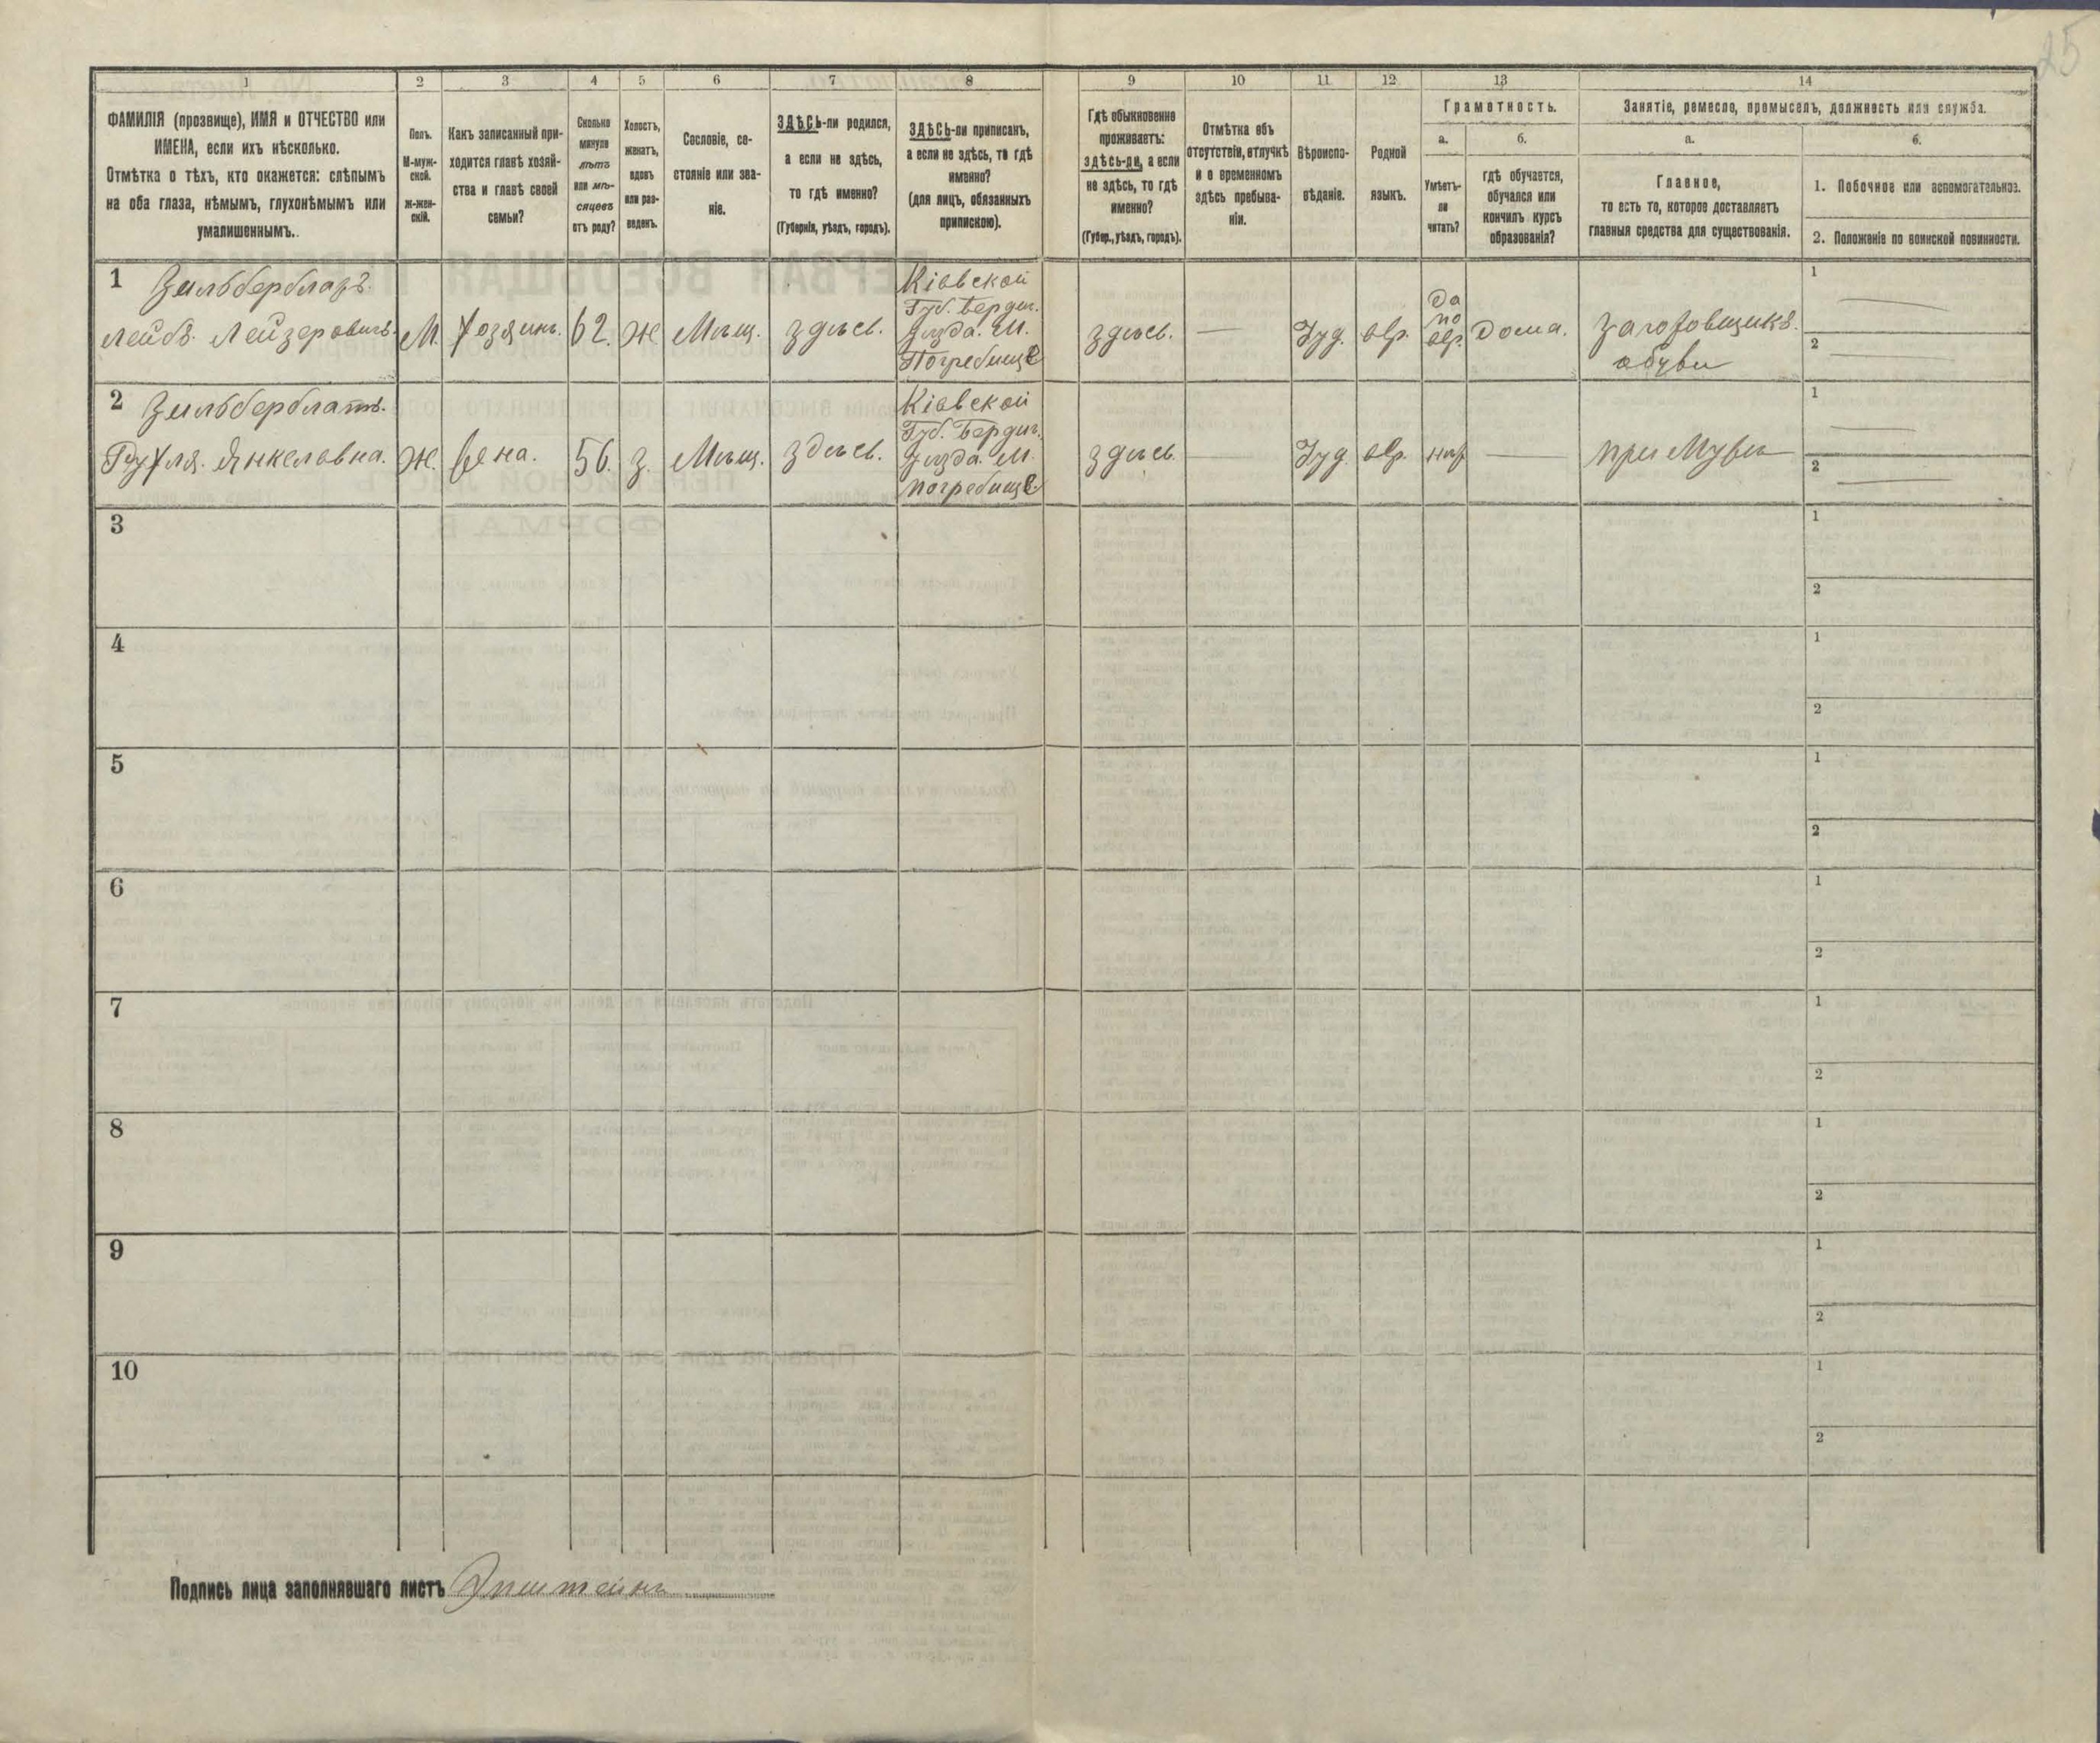 25
1 2 3 4 5 6 7 8 9 10 11 12 13 14
ФАМИЛІЯ (прозвище), ИМЯ и ОТЧЕСТВО или
ИМЕНА, если ихъ нѣсколько.
Отмѣтка о тѣхъ, кто окажется: слѣпымъ
на оба глаза, нѣмымъ, глухонѣмымъ или
умалишеннымъ.
Полъ.
М-муж-
ской.
ж-жен-
скій.
Какъ записанный при-
ходится главѣ хозяй-
ства и главѣ своей
семьи?
Сколько
минуло
лѣтъ
или мѣ-
сяцевъ
отъ роду?
Холостъ,
женатъ,
вдовъ
или раз-
веденъ.
Сословіе, со-
стояніе или зва-
ніе.
ЗДѢСЬ-ли родился,
а если не здѣсь,
то гдѣ именно?
(Губернія, уѣздъ, городъ).
ЗДѢСЬ-ли приписанъ,
а если не здѣсь, то гдѣ
именно?
(для лицъ, обязанныхъ
припискою).
Гдѣ обыкновенно
проживаетъ:
здѣсь-ли, а если
не здѣсь, то гдѣ
именно?
(Губер., уѣздъ, городъ).
Отмѣтка объ
отсутствіи, отлучкѣ
и о временномъ
здѣсь пребыва-
ніи.
Вѣроиспо-
вѣданіе.
Родной
языкъ.
Грамотность.
а.
Умѣетъ-
ли
читать?
б.
гдѣ обучается,
обучался или
кончилъ курсъ
образованія?
Занятіе, ремесло, промыселъ, должность или служба.
а.
Главное,
то есть то, которое доставляетъ
главныя средства для существованія.
б.
1. Побочное или вспомогательное.
2. Положеніе по воинской повинности.
1
Зильберблатъ
Лейбъ Лейзеровичъ
М.
Хозяинъ.
62.
Ж
Мѣщ.
здѣсь.
Кіевской
Губ. Бердич.
уѣзда. М.
Погребище
здѣсь.
—
Іуд.
евр.
Да
по
евр.
Дома.
Заготовщикъ
обуви
1 —
2 —
2
Зильберблатъ.
Рухля Янкеловна.
Ж.
Жена.
56.
З.
Мѣщ.
здѣсь.
Кіевской
Губ. Бердич.
уѣзда. М.
Погребище
здѣсь
—
Іуд.
евр.
нѣт
—
при Мужѣ
1 —
2 —
3
1
2
4
1
2
5
1
2
6
1
2
7
1
2
8
1
2
9
1
2
10
1
2
Подпись лица заполнявшаго листъ Эпштейнъ